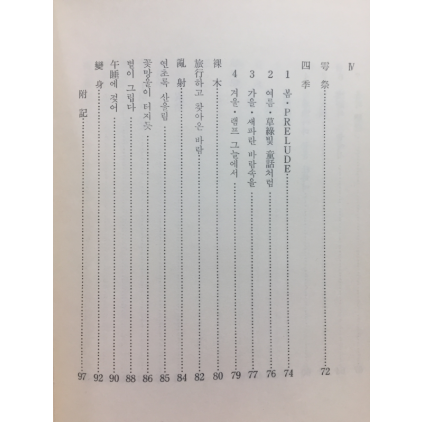 Ⅳ
雩祭 72
四季
1 봄·PRELUDE 74
2 여름·草綠빛 童話처럼 76
3 가을·새파란 바람속을 77
4 겨울·램프 그늘에서 79
裸木 80
旅行하고 찾아온 바람 82
亂射 84
연초록 산울림 85
꽃망울이 터지듯 86
별이 그립다 88
午睡에 젖어 90
變身 92
附記 97